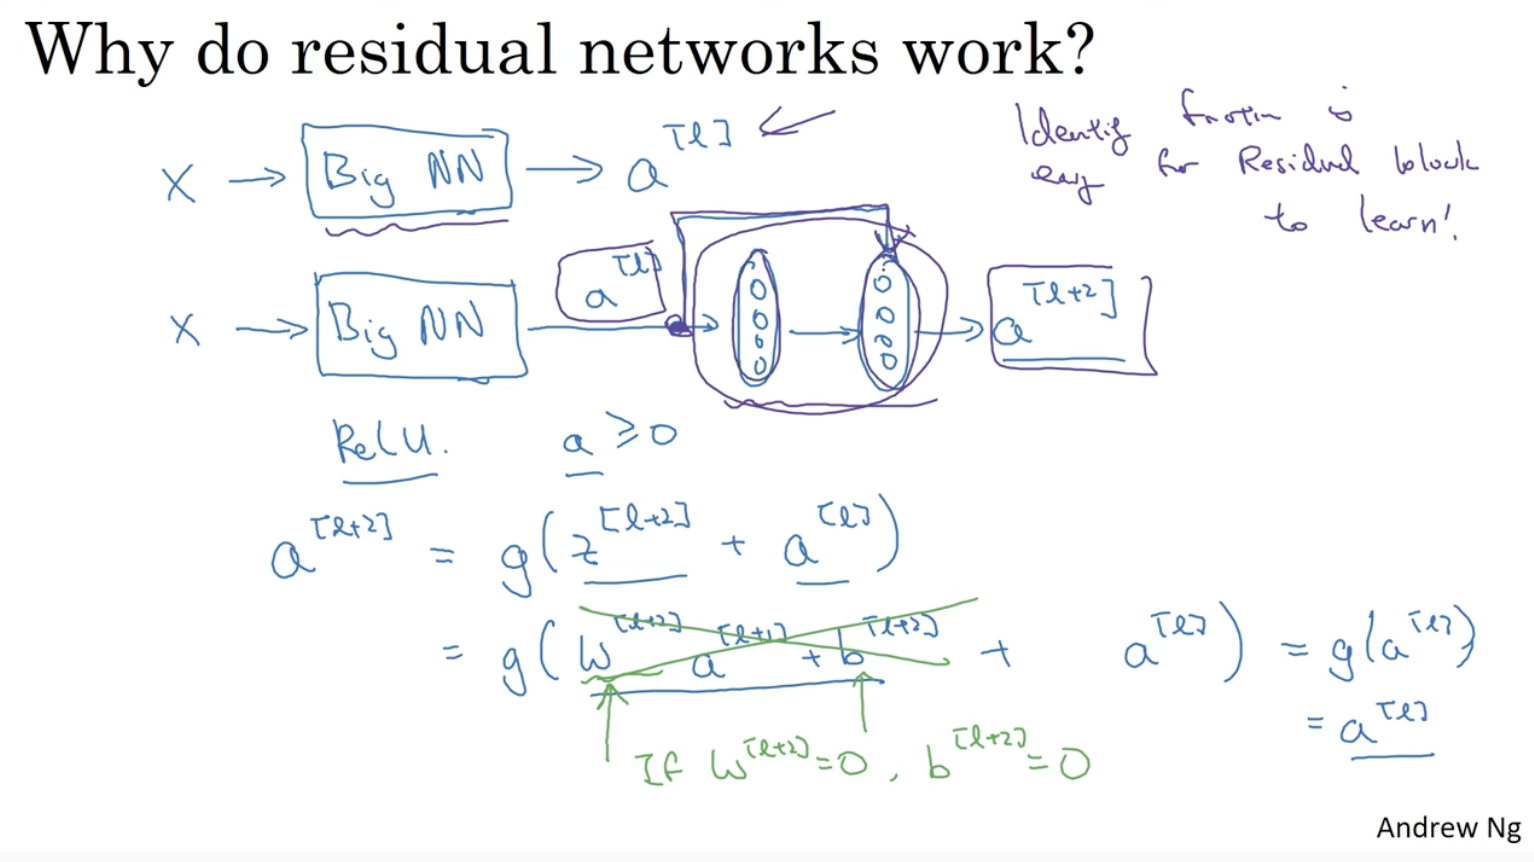 Why do residual networks work?
X → Big NN → a^[l]
Identity function is
easy for Residual block
to learn!
X → Big NN a^[l] → → a^[l+2]
ReLU. a ≥ 0
a^[l+2] = g(z^[l+2] + a^[l])
= g(W^[l+2] a^[l+1] + b^[l+2] + a^[l]) = g(a^[l])
= a^[l]
If W^[l+2] = 0, b^[l+2] = 0
Andrew Ng